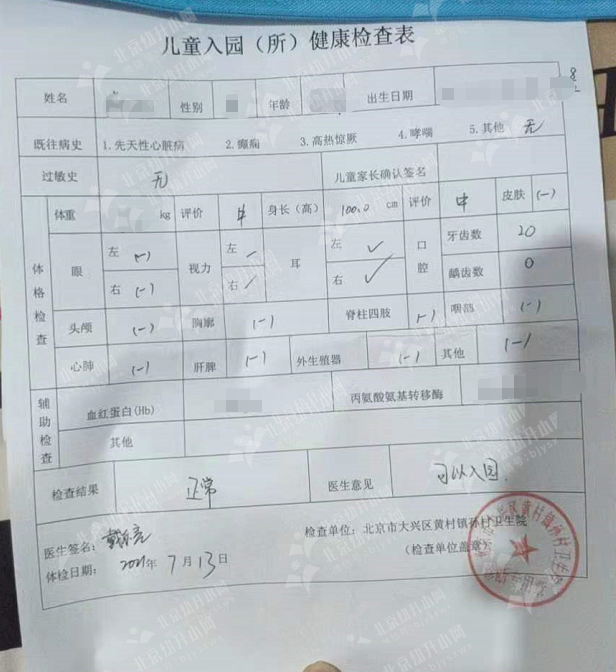 儿童入园（所）健康检查表
姓名 性别 年龄 出生日期
既往病史 1.先天性心脏病 2.癫痫 3.高热惊厥 4.哮喘 5.其他 无
过敏史 无 儿童家长确认签名
体格检查
体重 kg 评价 中 身长（高） 100.0 cm 评价 中 皮肤 (-)
眼 左 (-) 视力 左 耳 左 ✓ 口腔 牙齿数 20
右 (-) 右 ✓ 右 ✓ 龋齿数 0
头颅 (-) 胸廓 (-) 脊柱四肢 (-) 咽部 (-)
心肺 (-) 肝脾 (-) 外生殖器 (-) 其他 (-)
辅助检查
血红蛋白(Hb) 丙氨酸氨基转移酶
其他
检查结果 正常 医生意见 可以入园
医生签名：
检查单位：北京市大兴区黄村镇孙村卫生院
体检日期： 2021年 7月13日
（检查单位盖章）